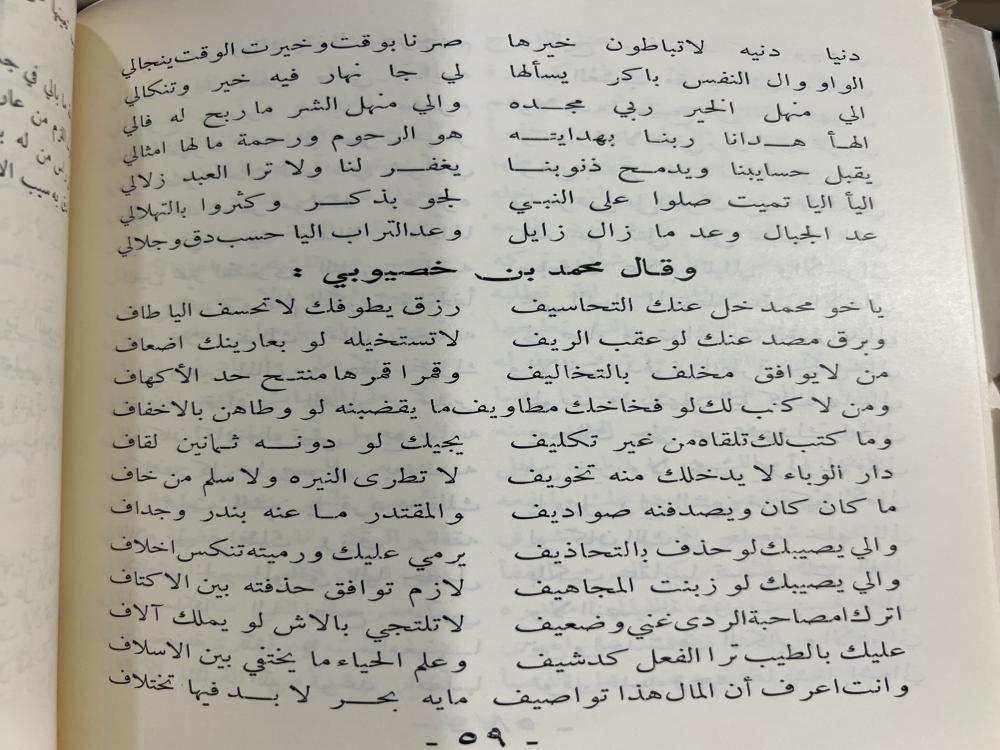 دنيا دنيه لاتباطون خيرها صرنا بوقت وخيرت الوقت ينجالي
الواو وال النفس باكر يسألها لي جا نهار فيه خير وتنكالي
الي منهل الخير ربي مجده والي منهل الشر ما ربح له فالي
الهأ هدانا ربنا بهدايته هو الرحوم ورحمة مالها امثالي
يقبل حسايبنا ويدمح ذنوبنا يغفر لنا ولا ترا العبد زلالي
اليأ اليا تميت صلوا على النبي لجو بذكر وكثروا بالتهلالي
عد الجبال وعد ما زال زايل وعد التراب اليا حسب دق وجلالي
وقال محمد بن خصيوبي :
يا خو محمد خل عنك التحاسيف رزق يطوفك لا تحسف اليا طاف
وبرق مصد عنك لو عقب الريف لاتستخيله لو بعارينك اضعاف
من لا يوافق مخلف بالتخاليف وقمرا قمرها منتح حد الأكهاف
ومن لا كتب لك لو فخاخك مطاويف ما يقضبنه لو وطاهن بالاخفاف
وما كتب لك تلقاه من غير تكليف يجيك لو دونه ثمانين لقاف
دار الوباء لا يدخلك منه تخويف لا تطرى النيره ولا سلم من خاف
ما كان كان ويصدفنه صواديف والمقتدر ما عنه بندر وجداف
والي يصيبك لو حذف بالتحاذيف يرمي عليك ورميته تنكس اخلاف
والي يصيبك لو زبنت المجاهيف لازم توافق حذفته بين الاكتاف
اترك امصاحبة الردى غني وضعيف لاتلتجي بالاش لو يملك آلاف
عليك بالطيب ترا الفعل كدشيف وعلم الحياء ما يختفي بين الاسلاف
وانت اعرف أن المال هذا تواصيف مايه بحر لا بد فيها تختلاف
- ٥٩ -